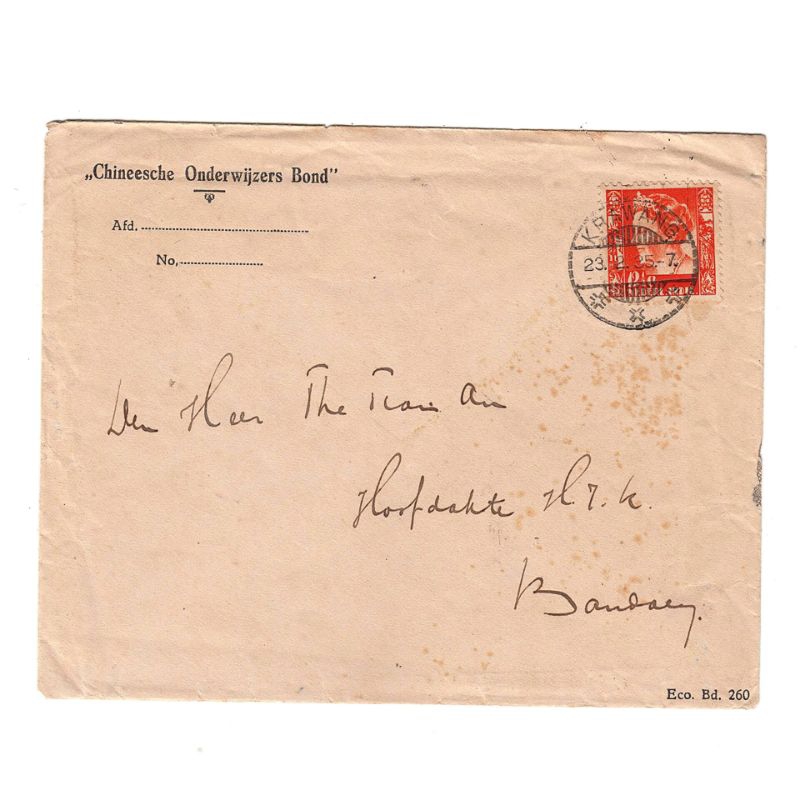 „Chineesche Onderwijzers Bond”
Afd.
No,
KRAWANG
23.12.35.-7.
Den Heer The Tian An
Hoofdakte H.
Bandoeng.
Eco. Bd. 260